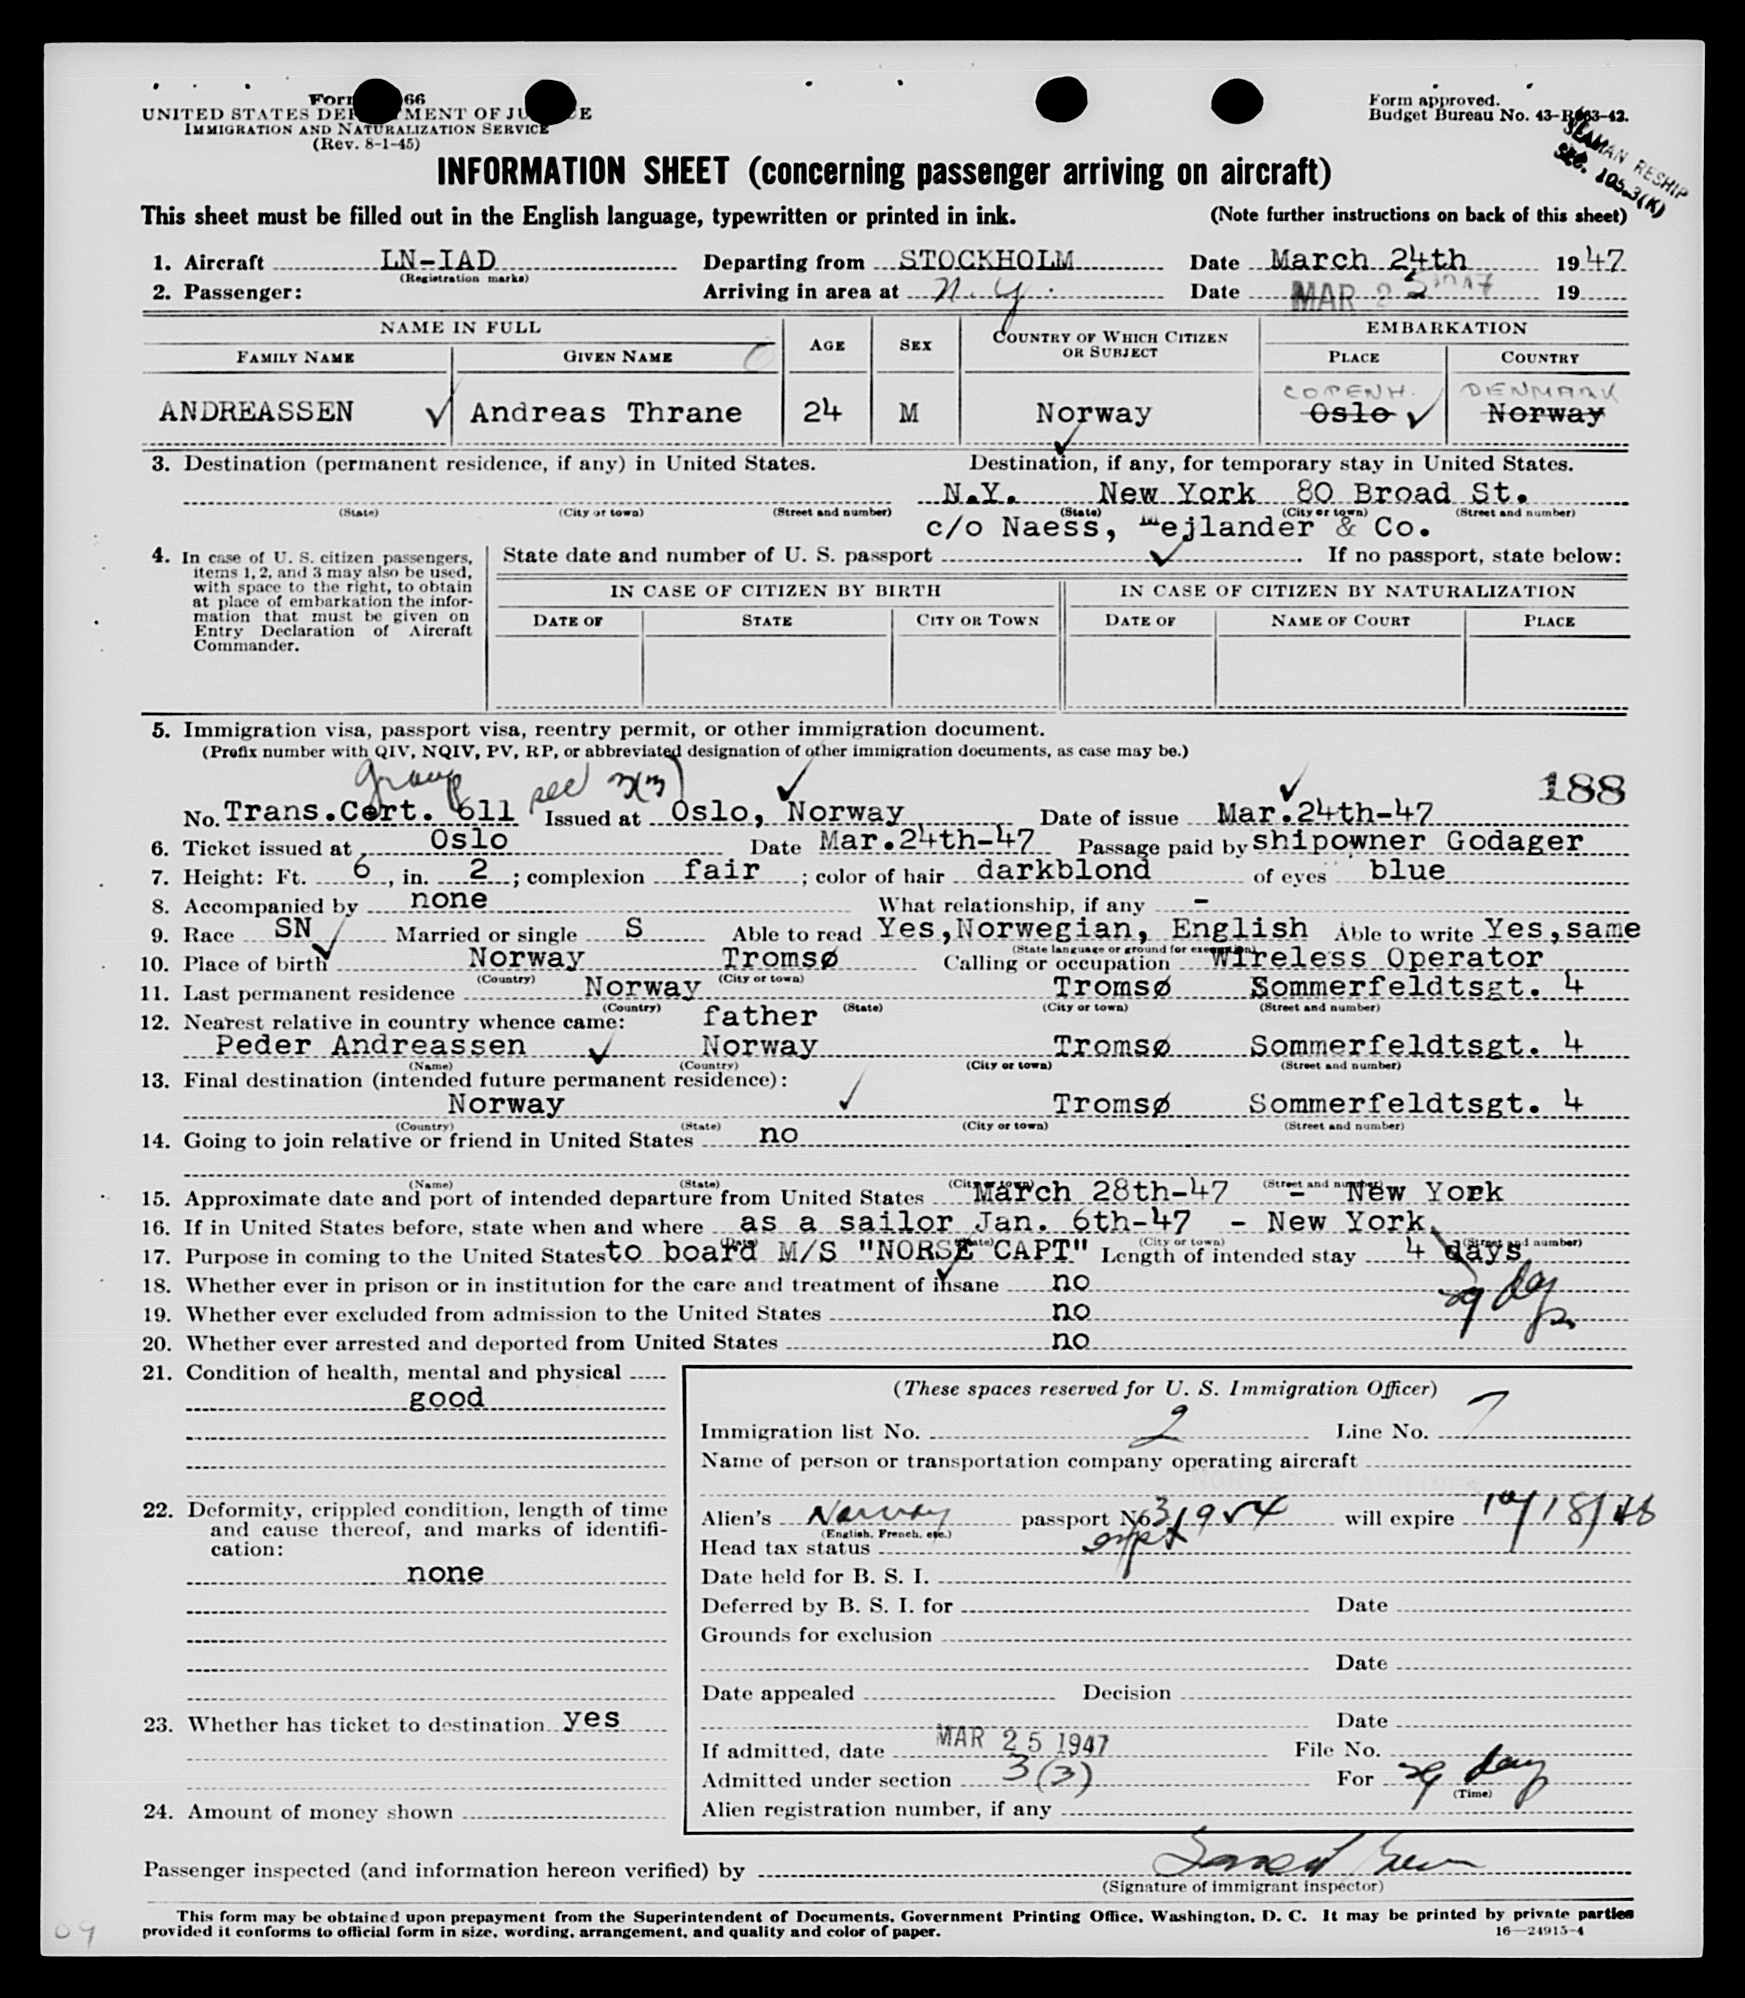 Form 66
UNITED STATES DEPARTMENT OF JUSTICE
IMMIGRATION AND NATURALIZATION SERVICE
(Rev. 8-1-45)
Form approved.
Budget Bureau No. 43-R063-42.
SEAMAN RESHIP
SEC. 105.3(K)
INFORMATION SHEET (concerning passenger arriving on aircraft)
This sheet must be filled out in the English language, typewritten or printed in ink. (Note further instructions on back of this sheet)
1. Aircraft LN-IAD Departing from STOCKHOLM Date March 24th 1947
(Registration marks)
2. Passenger: Arriving in area at N.Y. Date MAR 25 1947 19
NAME IN FULL AGE SEX COUNTRY OF WHICH CITIZEN OR SUBJECT EMBARKATION
FAMILY NAME GIVEN NAME PLACE COUNTRY
COPENH. DENMARK
ANDREASSEN Andreas Thrane 24 M Norway Oslo Norway
3. Destination (permanent residence, if any) in United States. Destination, if any, for temporary stay in United States.
N.Y. New York 80 Broad St.
(State) (City or town) (Street and number) (State) (City or town) (Street and number)
c/o Naess, Mejlander & Co.
4. In case of U. S. citizen passengers, items 1, 2, and 3 may also be used, with space to the right, to obtain at place of embarkation the information that must be given on Entry Declaration of Aircraft Commander.
State date and number of U. S. passport If no passport, state below:
IN CASE OF CITIZEN BY BIRTH IN CASE OF CITIZEN BY NATURALIZATION
DATE OF STATE CITY OR TOWN DATE OF NAME OF COURT PLACE
5. Immigration visa, passport visa, reentry permit, or other immigration document.
(Prefix number with QIV, NQIV, PV, RP, or abbreviated designation of other immigration documents, as case may be.)
group sec 3(3) 188
No. Trans.Cert. 611 Issued at Oslo, Norway Date of issue Mar.24th-47
6. Ticket issued at Oslo Date Mar.24th-47 Passage paid by shipowner Godager
7. Height: Ft. 6, in. 2; complexion fair; color of hair darkblond of eyes blue
8. Accompanied by none What relationship, if any -
9. Race SN Married or single S Able to read Yes,Norwegian, English Able to write Yes,same
(State language or ground for exemption)
10. Place of birth Norway Tromsø Calling or occupation Wireless Operator
(Country) (City or town)
11. Last permanent residence Norway Tromsø Sommerfeldtsgt. 4
(Country) (State) (City or town) (Street and number)
12. Nearest relative in country whence came: father
Peder Andreassen Norway Tromsø Sommerfeldtsgt. 4
(Name) (Country) (City or town) (Street and number)
13. Final destination (intended future permanent residence):
Norway Tromsø Sommerfeldtsgt. 4
(Country) (State) (City or town) (Street and number)
14. Going to join relative or friend in United States no
(Name) (State) (City or town) (Street and number)
15. Approximate date and port of intended departure from United States March 28th-47 - New York
16. If in United States before, state when and where as a sailor Jan. 6th-47 - New York
(Date) (State) (City or town) (Street and number)
17. Purpose in coming to the United States to board M/S "NORSE CAPT" Length of intended stay 4 days
29 days
18. Whether ever in prison or in institution for the care and treatment of insane no
19. Whether ever excluded from admission to the United States no
20. Whether ever arrested and deported from United States no
21. Condition of health, mental and physical
good
22. Deformity, crippled condition, length of time and cause thereof, and marks of identification:
none
23. Whether has ticket to destination yes
24. Amount of money shown
(These spaces reserved for U. S. Immigration Officer)
Immigration list No. 2 Line No. 7
Name of person or transportation company operating aircraft
Alien's Norway passport No. 31954 will expire 10/18/48
(English, French, etc.)
Head tax status
Date held for B. S. I.
Deferred by B. S. I. for Date
Grounds for exclusion
Date
Date appealed Decision
Date
If admitted, date MAR 25 1947 File No.
Admitted under section 3(3) For 29 day
(Time)
Alien registration number, if any
Passenger inspected (and information hereon verified) by
(Signature of immigrant inspector)
This form may be obtained upon prepayment from the Superintendent of Documents, Government Printing Office, Washington, D. C. It may be printed by private parties
provided it conforms to official form in size, wording, arrangement, and quality and color of paper.
16—24915-4
09